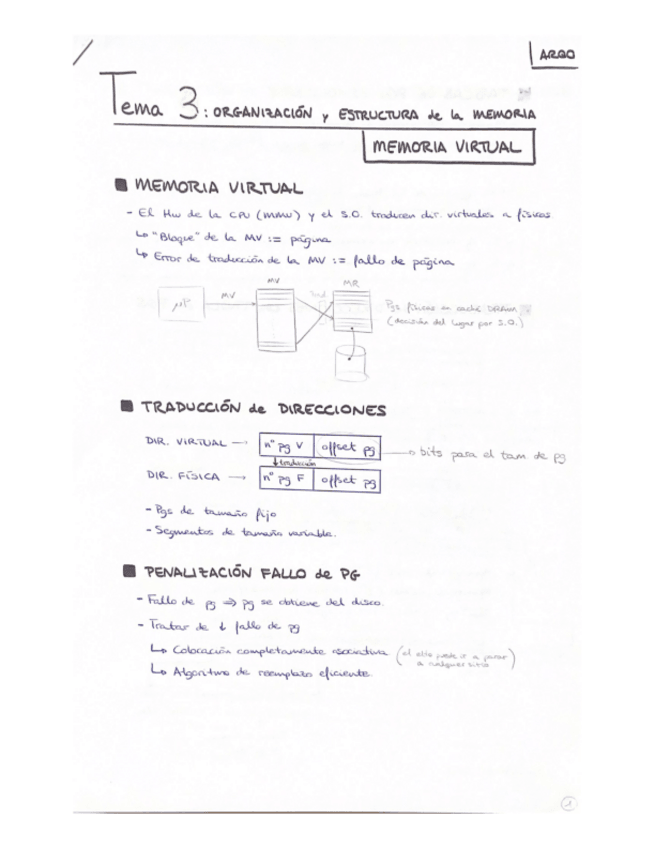 ARGO
Tema 3: ORGANIZACIÓN y ESTRUCTURA de la MEMORIA
MEMORIA VIRTUAL
MEMORIA VIRTUAL
- El Hw de la CPU (MMU) y el S.O. traducen dir. virtuales a físicas
↳ "Bloque" de la MV := página
↳ Error de traducción de la MV := fallo de página
MV MV Trad MR
Pgs físicas en caché DRAM
(decisión del lugar por S.O.)
TRADUCCIÓN de DIRECCIONES
DIR. VIRTUAL → nº pg V offset pg → bits para el tam de pg
↓ traducción
DIR. FÍSICA → nº pg F offset pg
- Pgs de tamaño fijo
- Segmentos de tamaño variable.
PENALIZACIÓN FALLO de PG
- Fallo de pg ⇒ pg se obtiene del disco.
- Tratar de ↓ fallo de pg
↳ Colocación completamente asociativa (el puede ir a parar
a cualquier sitio)
↳ Algoritmo de reemplazo eficiente.
1